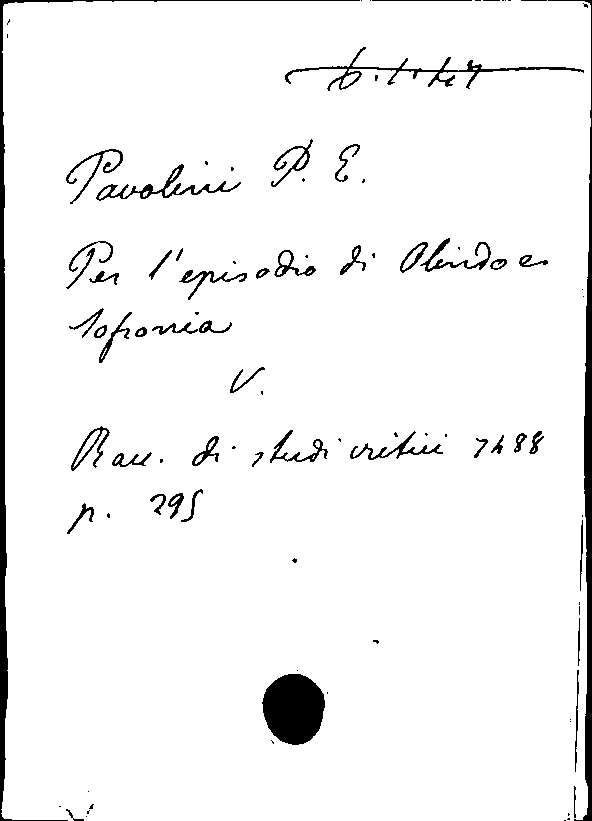 Pavolini P. E.
Per l'episodio di Olindo e
Sofronia
V.
Racc. di studi critici 7488
p. 295